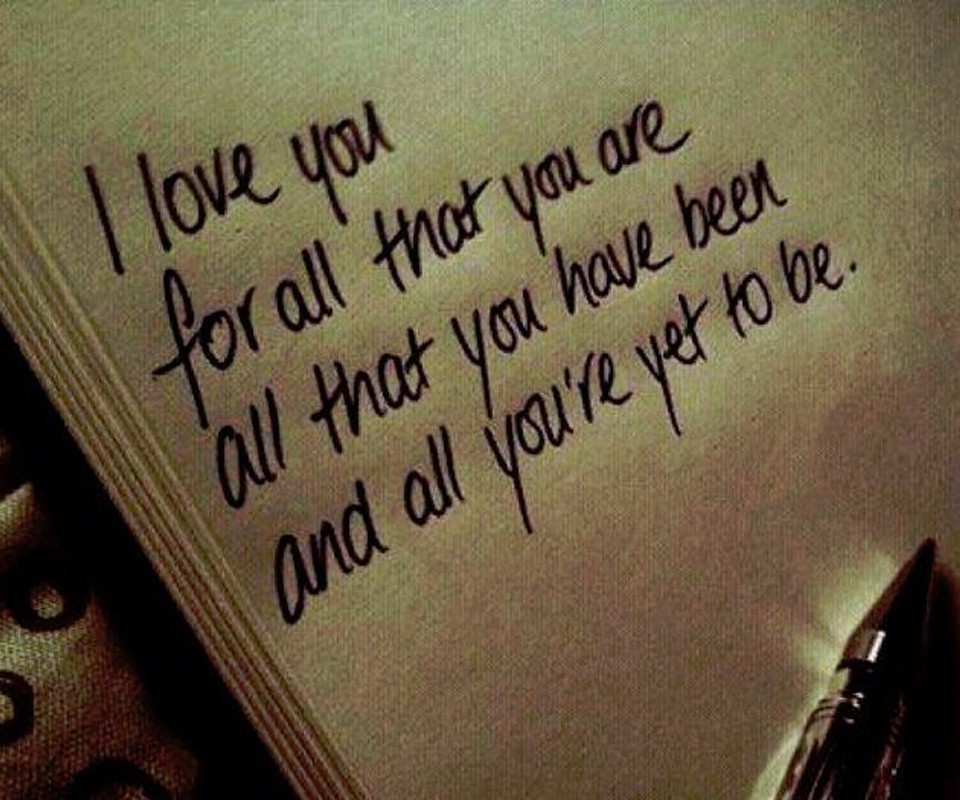 I love you
for all that you are
all that you have been
and all you're yet to be.